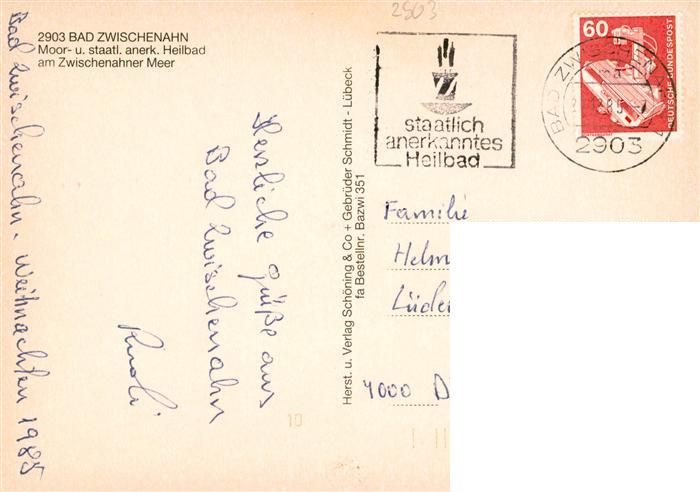 2903
2903 BAD ZWISCHENAHN
Moor- u. staatl. anerk. Heilbad
am Zwischenahner Meer
Bad Zwischenahn - Weihnachten 1985
Herzliche Grüße aus
Bad Zwischenahn
Rudi
Herst. u. Verlag Schöning & Co + Gebrüder Schmidt - Lübeck
fa Bestellnr. Bazwi 351
staatlich
anerkanntes
Heilbad
60
DEUTSCHE BUNDESPOST
BAD ZWISCHENA
2903
Familie
Helm
Lüde
4000 D
10